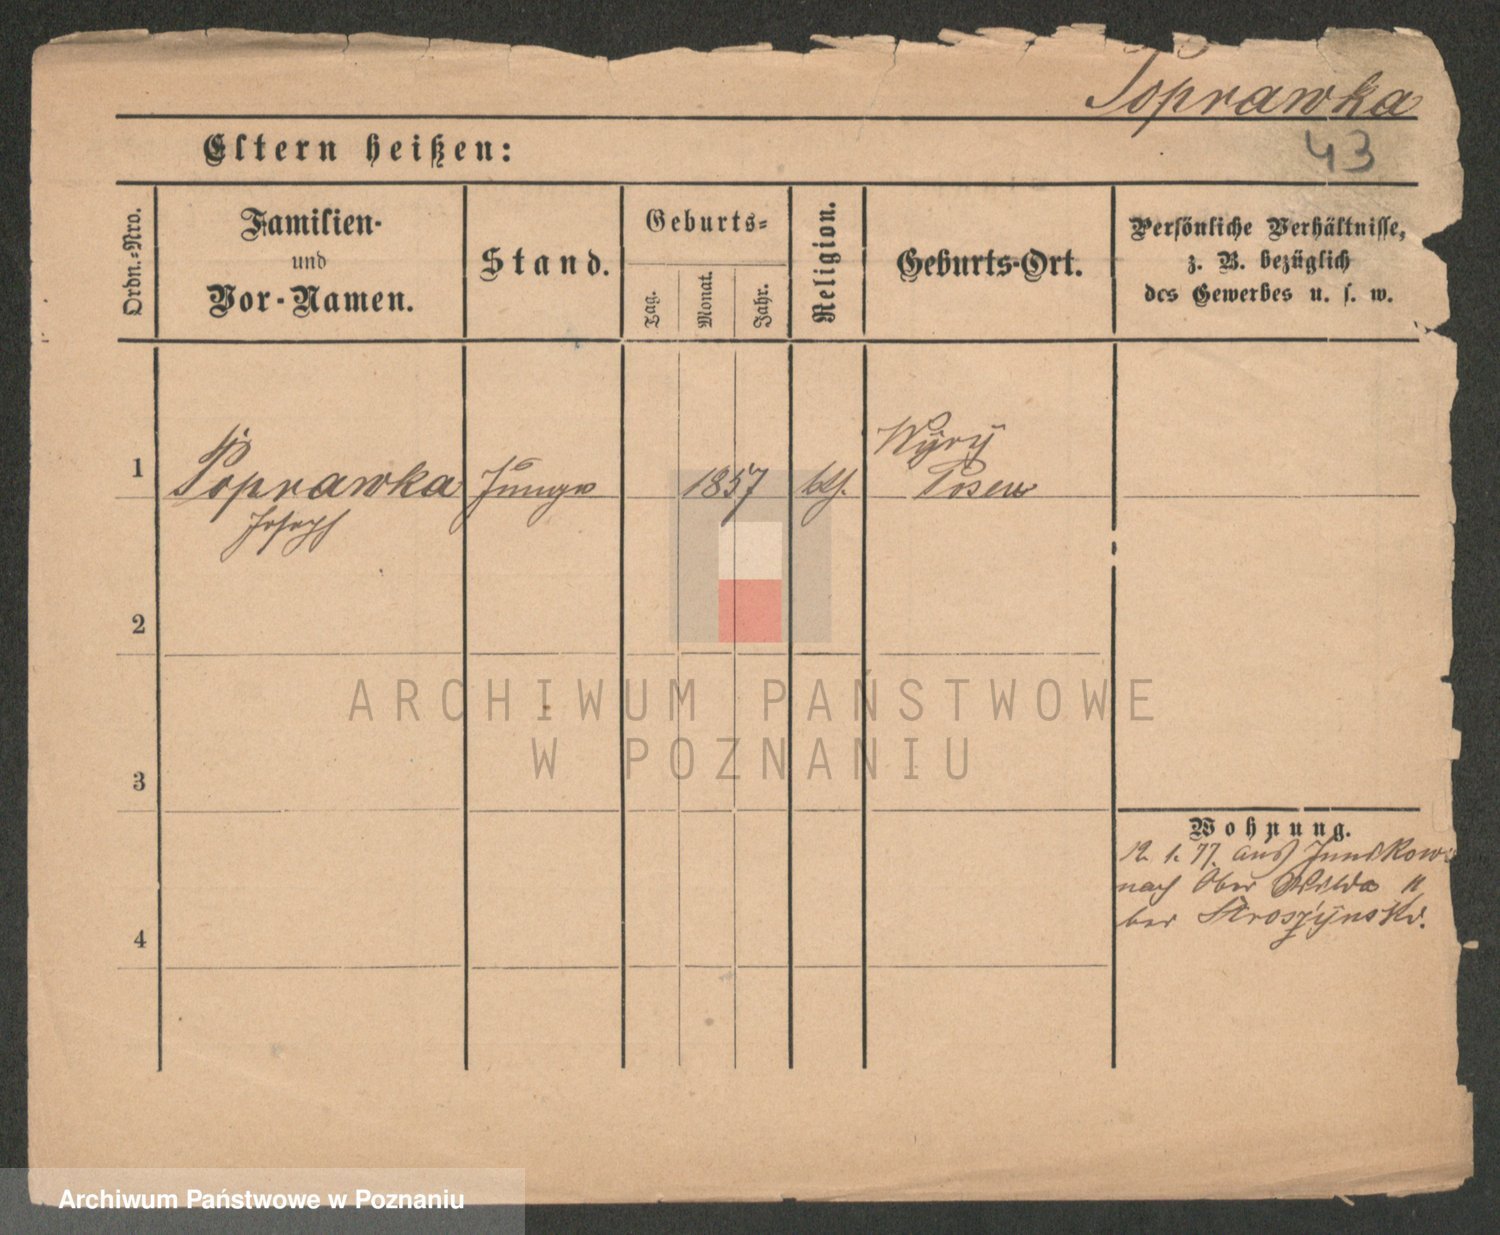 Poprawka
43
Eltern heißen:
Ordn.-Nro.
Familien-
und
Vor-Namen.
Stand.
Geburts-
Tag.
Monat.
Jahr.
Religion.
Geburts-Ort.
Persönliche Verhältnisse,
z. B. bezüglich
des Gewerbes u. s. w.
1
Poprawka
Joseph
Junge
1857
kth.
Wyry
Posen
2
3
4
Wohnung.
12. 1. 77. aus
nach Ober Wilda 11
ber
ARCHIWUM PAŃSTWOWE
W POZNANIU
Archiwum Państwowe w Poznaniu